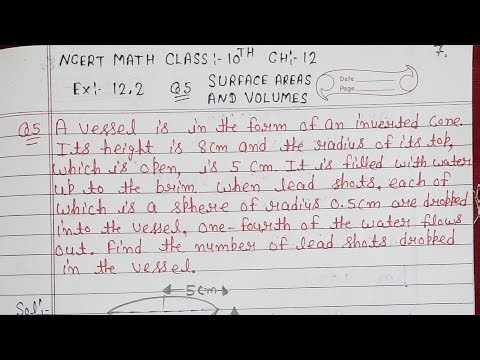 NCERT MATH CLASS:- 10TH CH:- 12
7.
Ex:- 12.2 Q5 SURFACE AREAS
AND VOLUMES
Date
Page
Q5 A vessel is in the form of an inverted cone.
Its height is 8cm and the radius of its top,
which is open, is 5 cm. It is filled with water
up to the brim. when lead shots, each of
which is a sphere of radius 0.5cm are dropped
into the vessel, one-fourth of the water flows
out. Find the number of lead shots dropped
in the vessel.
5cm
Sol:-